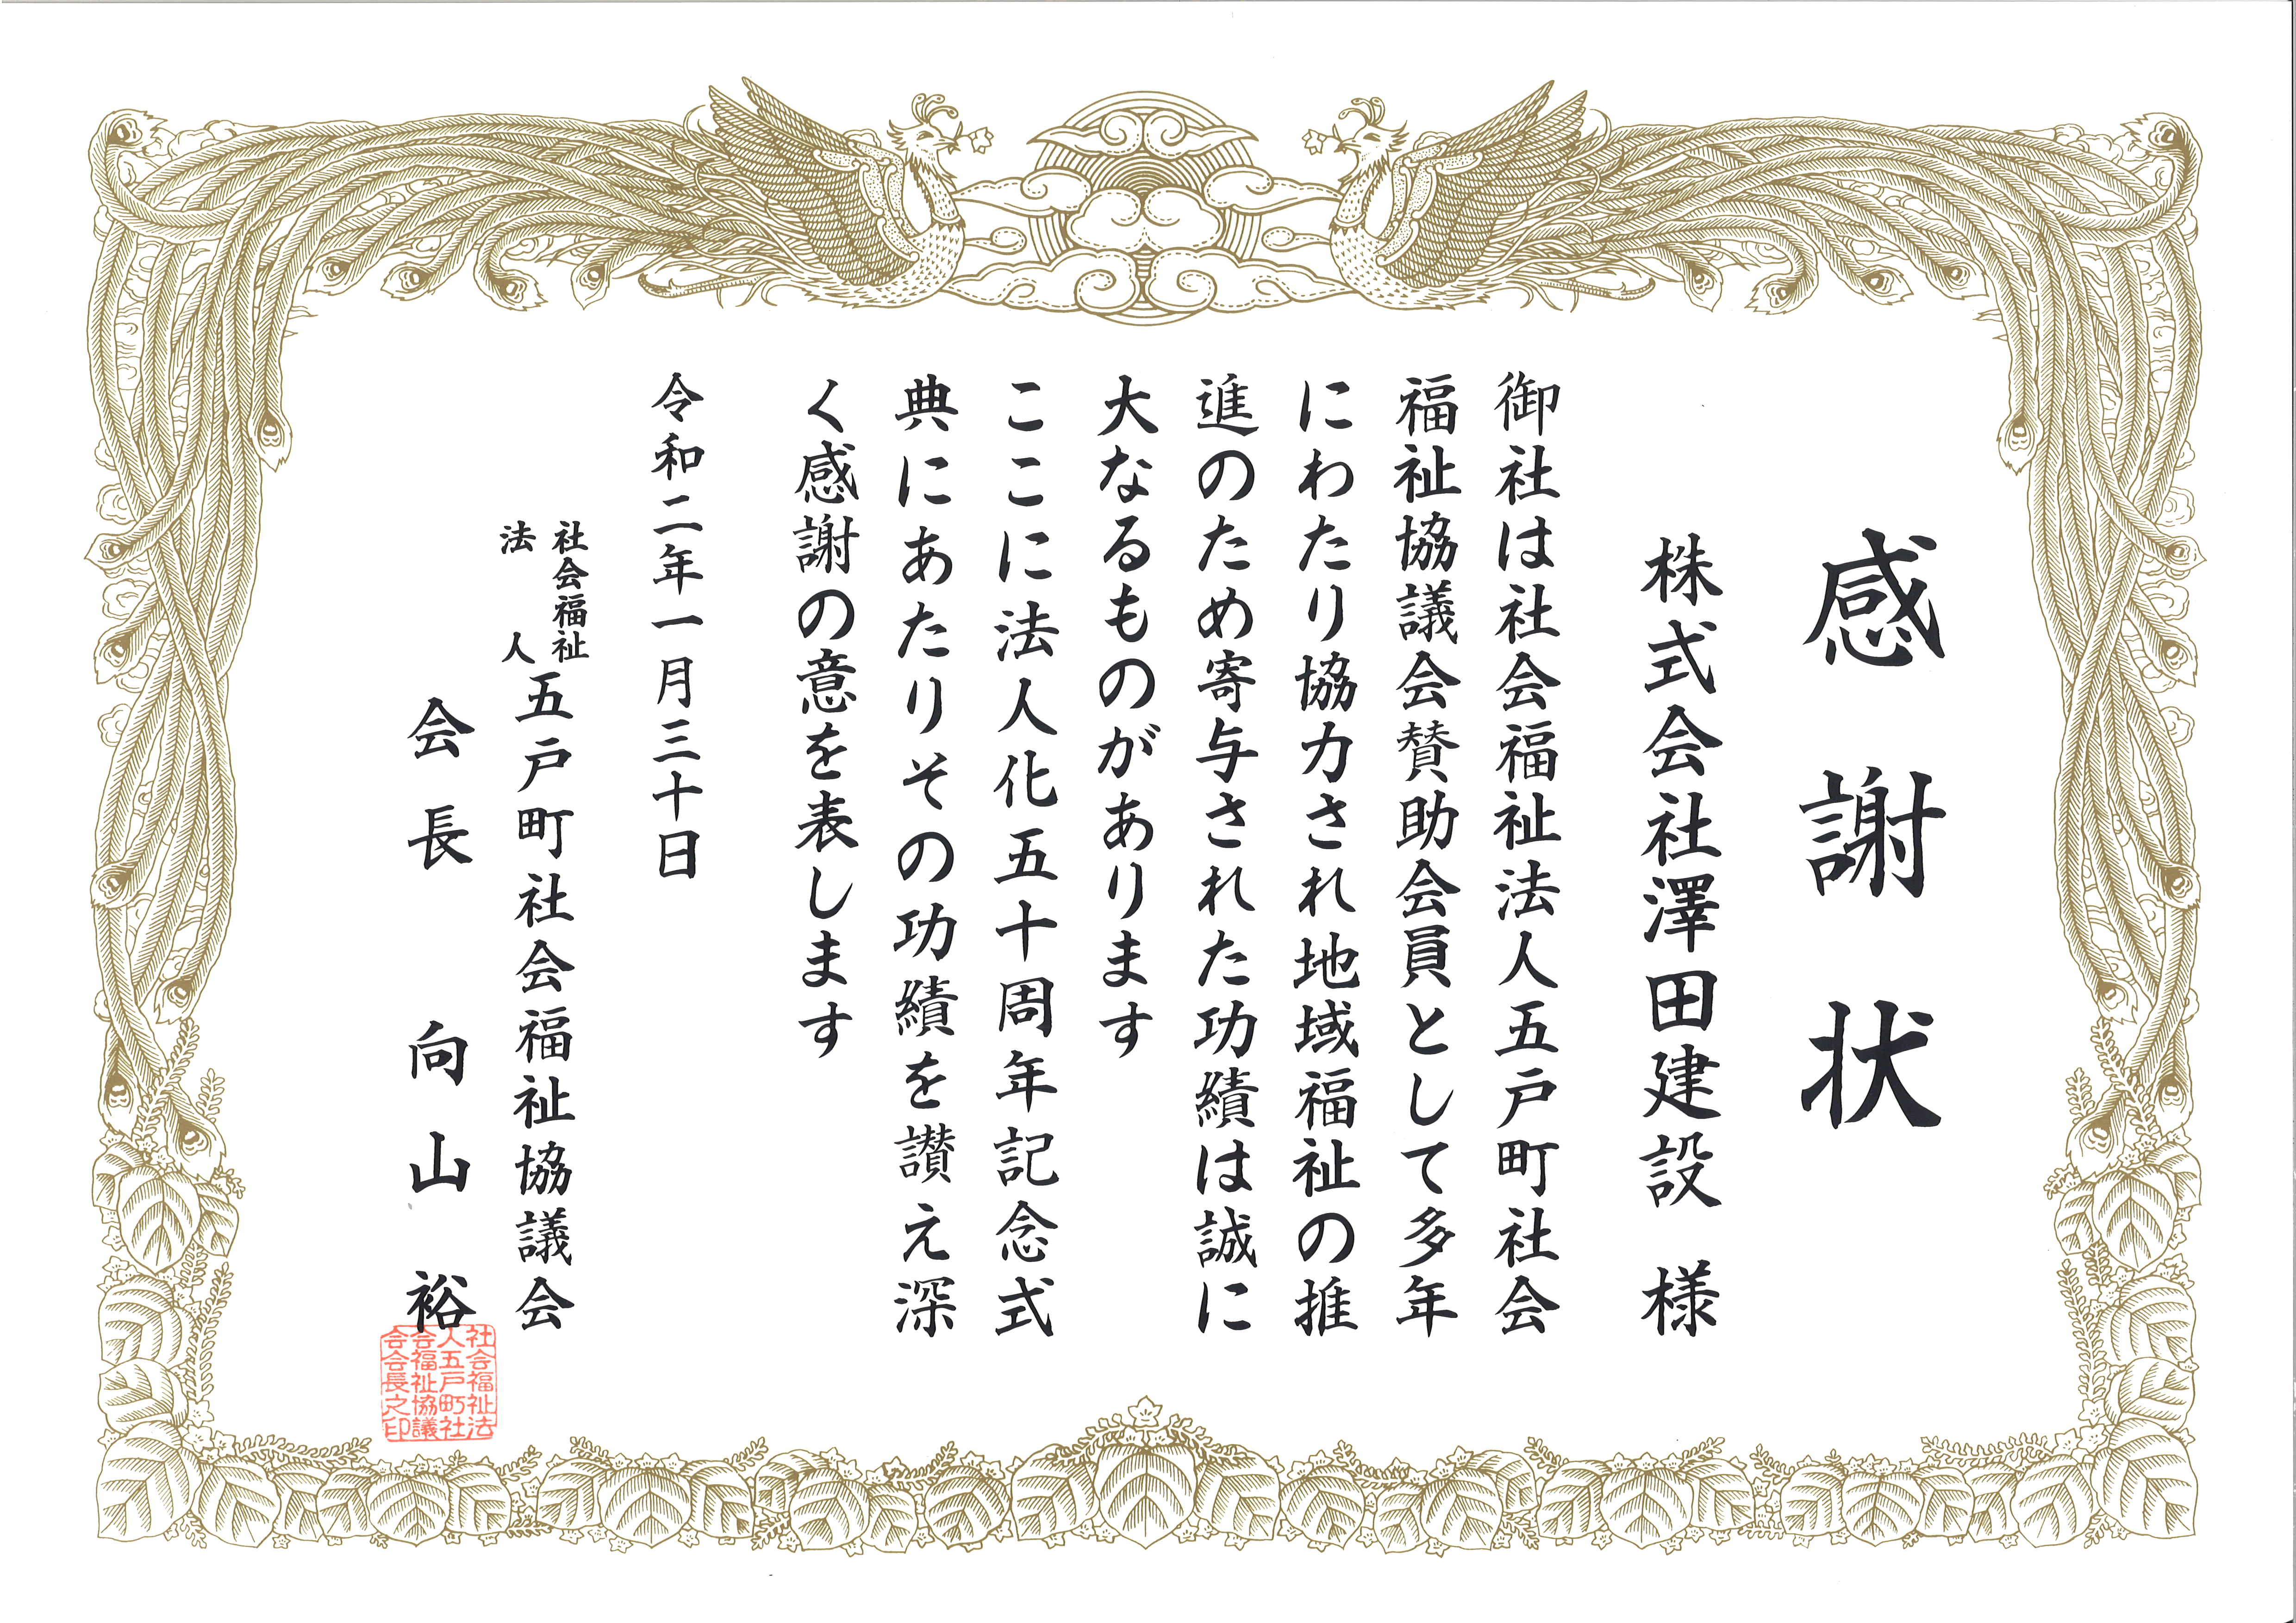 感謝状
株式会社澤田建設 様
御社は社会福祉法人五戸町社会
福祉協議会賛助会員として多年
にわたり協力され地域福祉の推
進のため寄与された功績は誠に
大なるものがあります
ここに法人化五十周年記念式
典にあたりその功績を讃え深
く感謝の意を表します
令和二年一月三十日
社会福祉
法人
五戸町社会福祉協議会
会長 向山裕
社会福祉法
人五戸町社
会福祉協議
会会長之印